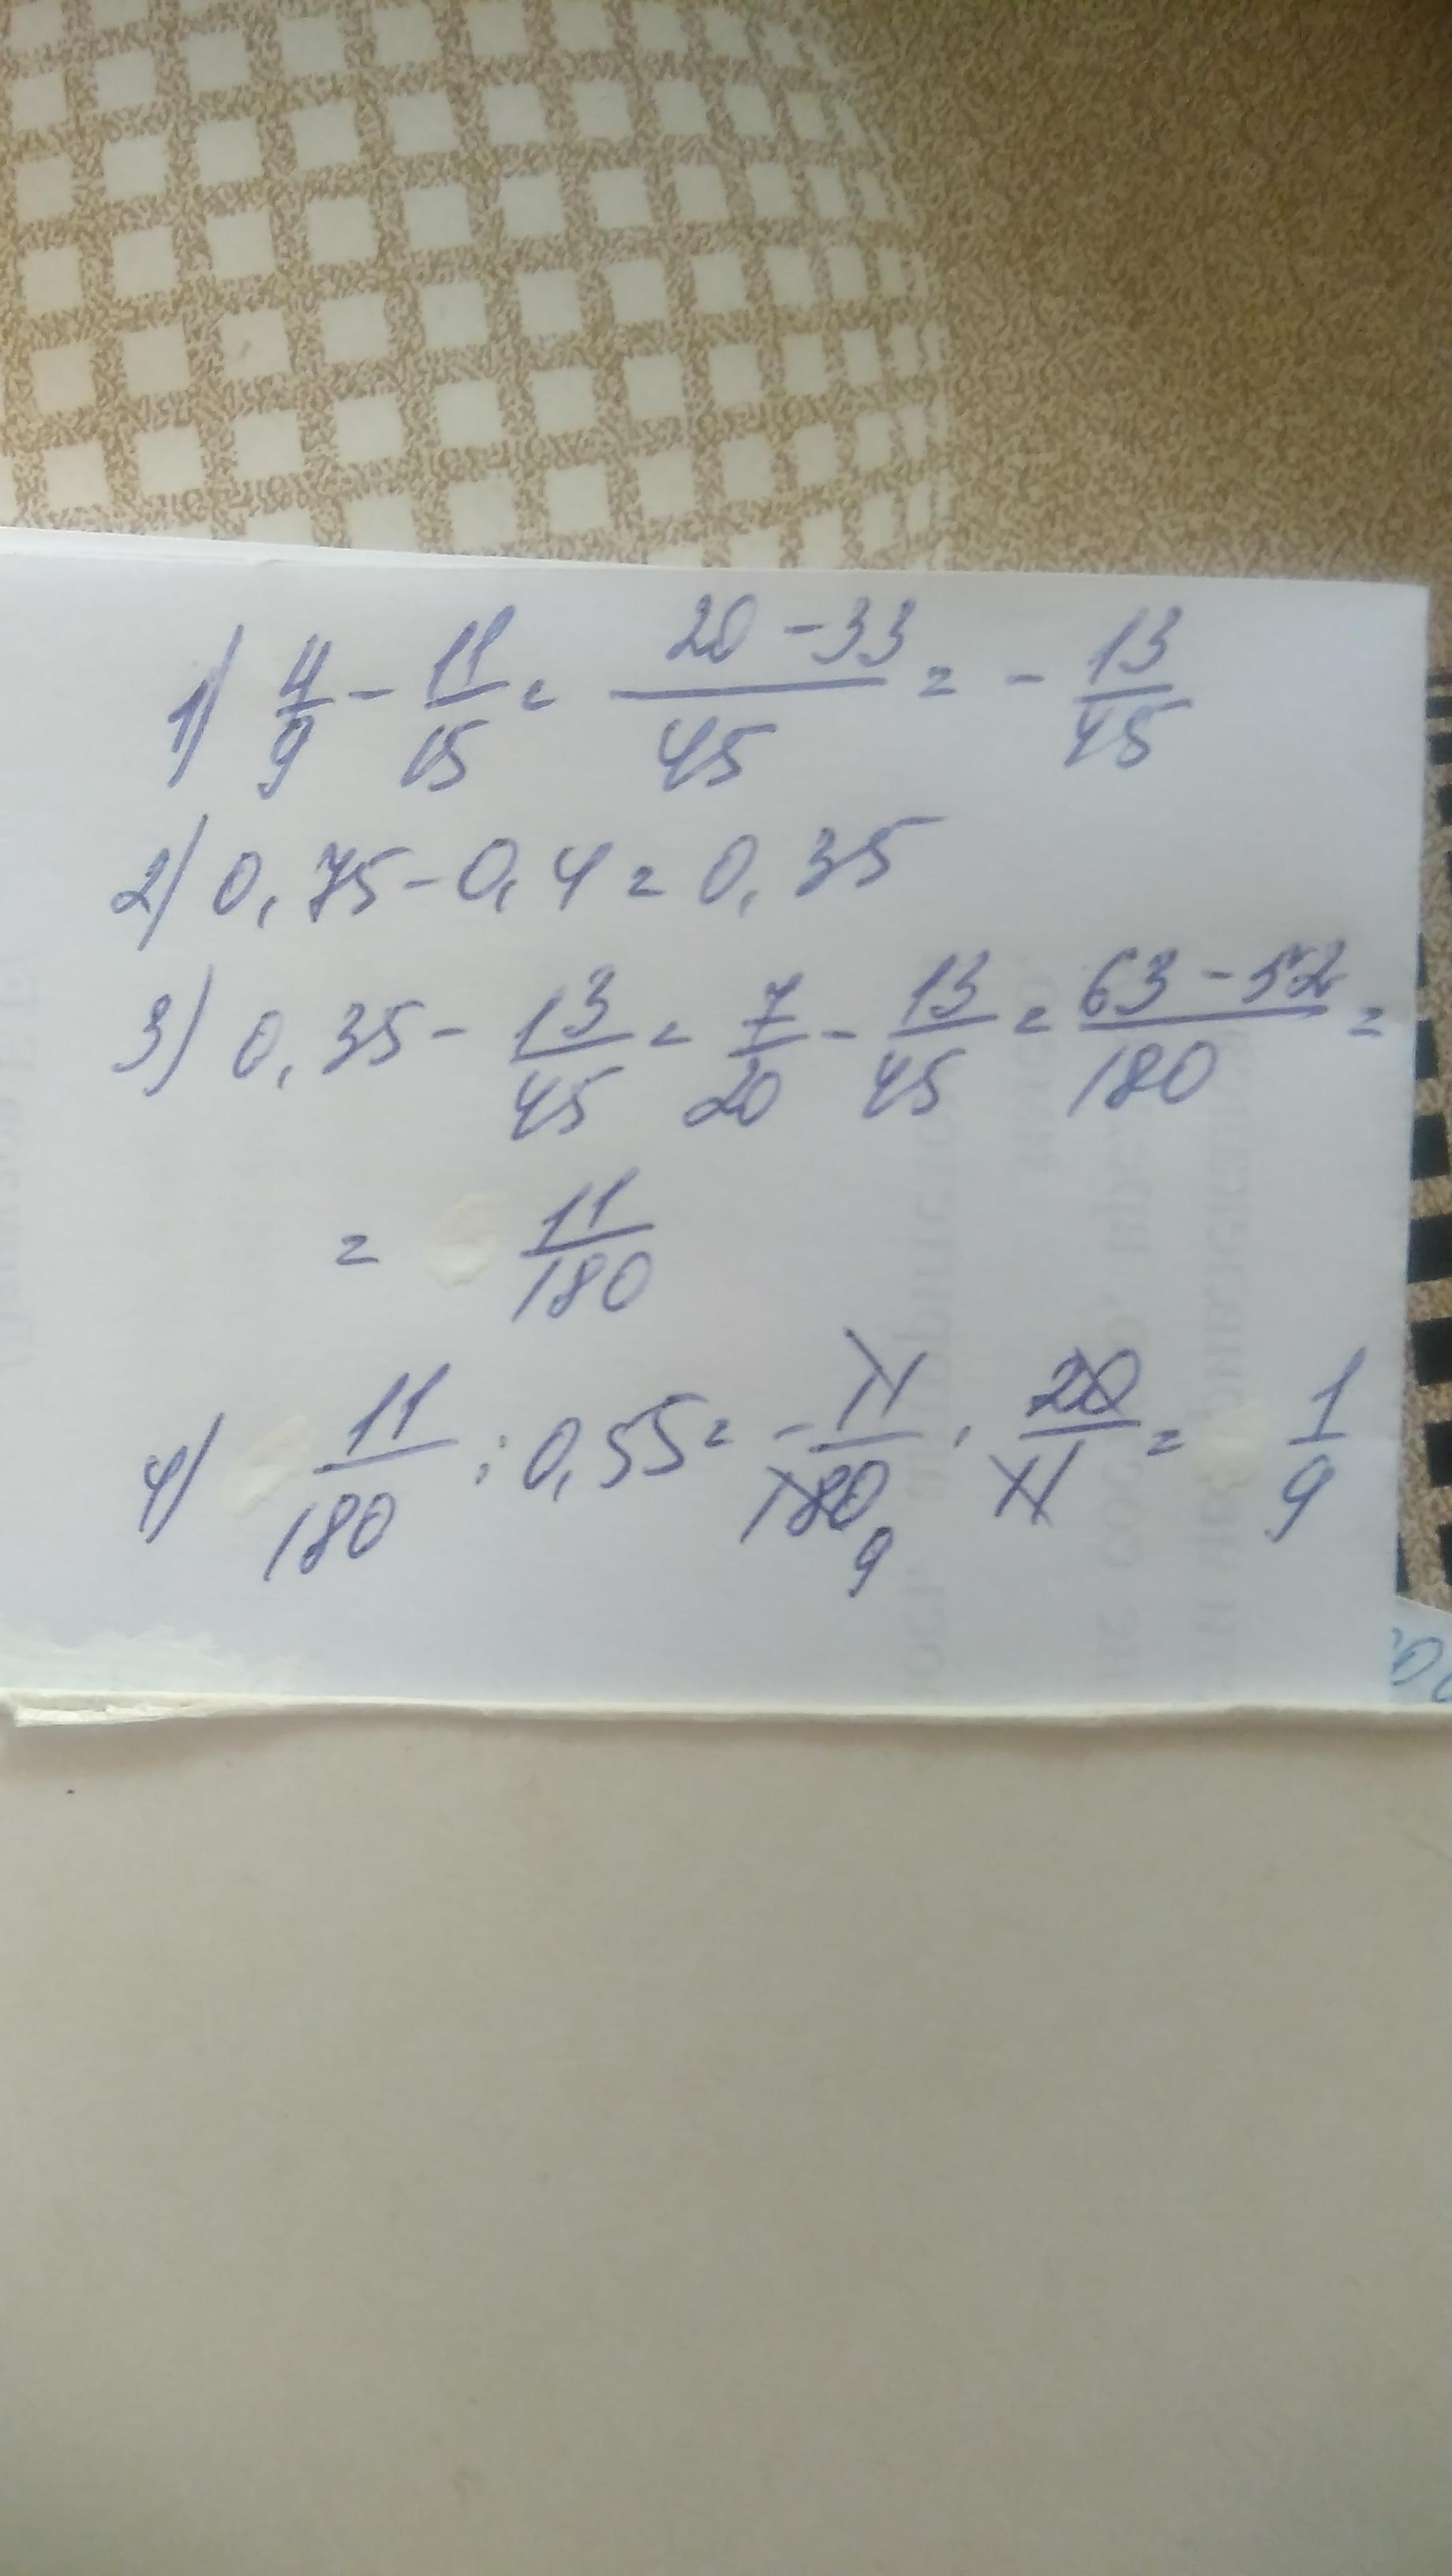 1) 4/9 - 11/15 = 20 - 33/45 = - 13/45
2) 0,75 - 0,4 = 0,35
3) 0,35 - 13/45 = 7/20 - 13/45 = 63 - 52/180 =
= 11/180
4) 11/180 : 0,55 = - 11/180 9 · 20/11 = 1/9